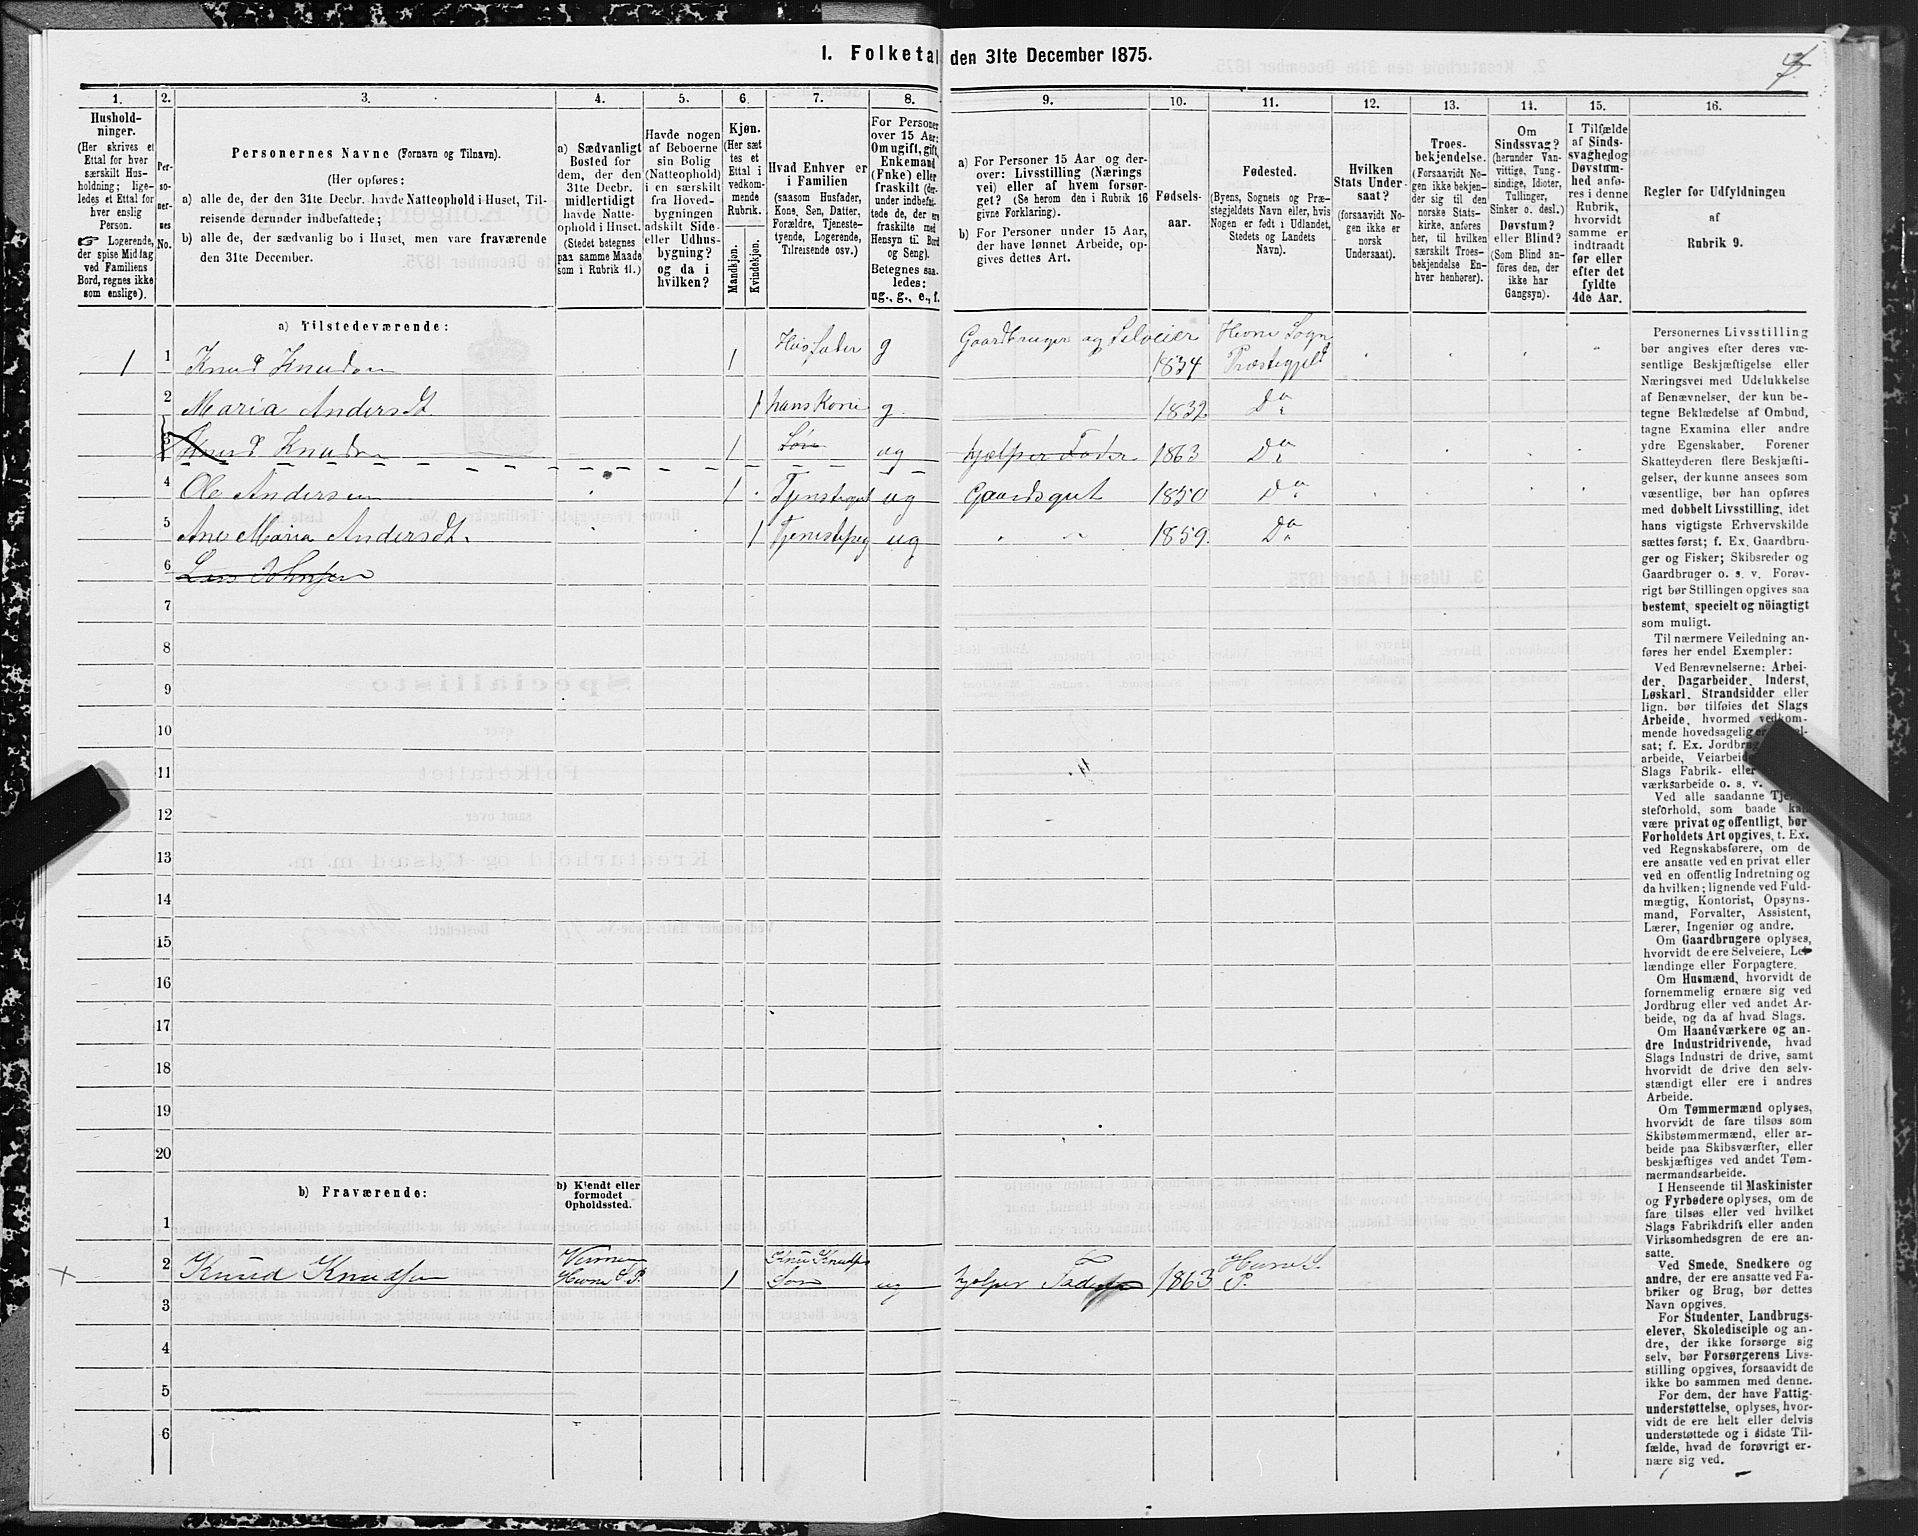 1. Folketal den 31te December 1875.
1.
2.
3.
4.
5.
6.
7.
8.
9.
10.
11.
12.
13.
14.
15.
16.
Hushold-
ninger.
(Her skrives et
Ettal for hver
særskilt Hus-
holdning; lige-
ledes et Ettal for
hver enslig
Person.
☞ Logerende,
der spise Middag
ved Familiens
Bord, regnes ikke
som enslige).
Per-
so-
ner-
nes
No.
Personernes Navne (Fornavn og Tilnavn).
(Her opføres:
a) alle de, der den 31te Decbr. havde Natteophold i Huset, Til-
reisende derunder indbefattede;
b) alle de, der sædvanlig bo i Huset, men vare fraværende
den 31te December.
a) Sædvanligt
Bosted for
dem, der den
31te Decbr.
midlertidigt
havde Natte-
ophold i Huset.
(Stedet betegnes
paa samme Maade
som i Rubrik 11.)
Havde nogen
af Beboerne
sin Bolig
(Natteophold)
i en særskilt
fra Hoved-
bygningen
adskilt Side-
eller Udhus-
bygning?
og da i
hvilken?
Kjøn.
(Her sæt
tes et
Ettal i
vedkom-
mende
Rubrik.
Mandkjøn.
Kvindekjøn.
Hvad Enhver er
i Familien
(saasom Husfader,
Kone, Søn, Datter,
Forældre, Tjeneste-
tyende, Logerende,
Tilreisende osv.)
For Personer
over 15 Aar:
Om ugift, gift,
Enkemand
(Enke) eller
fraskilt (der-
under indbefat-
tede de, der ere
fraskilte med
Hensyn til Bord
og Seng).
Betegnes saa-
ledes:
ug., g., e., f.
a) For Personer 15 Aar og der-
over: Livsstilling (Nærings
vei) eller af hvem forsør-
get? (Se herom den i Rubrik 16
givne Forklaring).
b) For Personer under 15 Aar,
der have lønnet Arbeide, op-
gives dettes Art.
Fødsels-
aar.
Fødested.
(Byens, Sognets og Præ-
stegjeldets Navn eller, hvis
Nogen er født i Udlandet,
Stedets og Landets
Navn).
Hvilken
Stats Under-
saat?
(forsaavidt No-
gen ikke er
norsk
Undersaat).
Troes-
bekjendelse.
(Forsaavidt No-
gen ikke bekjen-
der sig til den
norske Stats-
kirke, anføres
her, til hvilken
særskilt Troes-
bekjendelse En-
hver henhører).
Om
Sindssvag?
(herunder Van-
vittige, Tung-
sindige, Idioter,
Tullinger,
Sinker o. desl.)
Døvstum?
eller Blind?
(Som Blind an-
føres den, der
ikke har
Gangsyn).
I Tilfælde
af Sinds-
svaghed og
Døvstum-
hed anfø-
res i denne
Rubrik,
hvorvidt
samme er
indtraadt
før eller
efter det
fyldte
4de Aar.
Regler for Udfyldningen
af
Rubrik 9.
a) Tilstedeværende:
1 1 Knud Knudsen 1 Husfader g Gaardbruger og Selveier 1834 Hevne Sogn Præstegjeld
2 Maria Andersdt. 1 hans Kone g 1832 Do
3 Knud Knudsen 1 Søn ug hjælper Fader 1863 Do
4 Ole Andersen 1 Tjenstegut ug Gaardsgut 1850 Do
5 Ane Maria Andersdt. 1 Tjenestepig ug 1859 Do
6 Lars Johnsen
7
8
9
10
11
12
13
14
15
16
17
18
19
20
b) Fraværende:
b) Kjendt eller
formodet
Opholdssted.
1
2 Knud Knudsen Hevne S P. 1 Knud Knudsens Søn ug hjælper Fader 1863 Hevne S. P.
3
4
5
6
Personernes Livsstilling
bør angives efter deres væ-
sentlige Beskjæftigelse eller
Næringsvei med Udelukkelse
af Benævnelser, der kun be-
tegne Beklædelse af Ombud,
tagne Examina eller andre
ydre Egenskaber. Forener
Skatteyderen flere Beskjæfti-
gelser, der kunne ansees som
væsentlige, bør han opføres
med dobbelt Livsstilling, idet
hans vigtigste Erhvervskilde
sættes først; f. Ex. Gaardbru-
ger og Fisker; Skibsreder og
Gaardbruger o. s. v. Forøv-
rigt bør Stillingen opgives saa
bestemt, specielt og nöiagtigt
som muligt.
Til nærmere Veiledning an-
føres her endel Exempler:
Ved Benævnelserne: Arbei-
der, Dagarbeider, Inderst,
Løskarl, Strandsidder eller
lign. bør tilføies det Slags
Arbeide, hvormed vedkom-
mende hovedsagelig er
sat; f. Ex. Jordbrug
arbeide, Veiarbeide
Slags Fabrik- eller
værksarbeide o. s. v.
Ved alle saadanne
steforhold, som baade
være privat og offentligt, bør
Forholdets Art opgives, t. Ex.
ved Regnskabsførere, om de
ere ansatte ved en privat eller
ved en offentlig Indretning og
da hvilken; lignende ved Fuld-
mægtig, Kontorist, Opsyns-
mand, Forvalter, Assistent,
Lærer, Ingeniør og andre.
Om Gaardbrugere oplyses,
hvorvidt de ere Selveiere, Lei-
lændinge eller Forpagtere.
Om Husmænd, hvorvidt de
fornemmelig ernære sig ved
Jordbrug eller ved andet Ar-
beide, og da af hvad Slags.
Om Haandværkere og an-
dre Industridrivende, hvad
Slags Industri de drive, samt
hvorvidt de drive den selv-
stændigt eller ere i andres
Arbeide.
Om Tømmermænd oplyses,
hvorvidt de fare tilsøs som
Skibstømmermænd, eller ar-
beide paa Skibsværfter, eller
beskjæftiges ved andet Tøm-
mermandsarbeide.
I Henseende til Maskinister
og Fyrbødere oplyses, om de
fare tilsøs eller ved hvilket
Slags Fabrikdrift eller anden
Virksomhedsgren de ere an-
satte.
Ved Smede, Snedkere og
andre, der ere ansatte ved Fa-
briker og Brug, bør dettes
Navn opgives.
For Studenter, Landbrugs-
elever, Skoledisciple og an-
dre, der ikke forsørge sig
selv, bør Forsørgerens Livs-
stilling opgives, forsaavidt de
ikke bo sammen med denne.
For dem, der have Fattig-
understøttelse, oplyses, hvor-
vidt de ere helt eller delvis
understøttede og i sidste Til-
fælde, hvad de forøvrigt er-
nære sig ved.